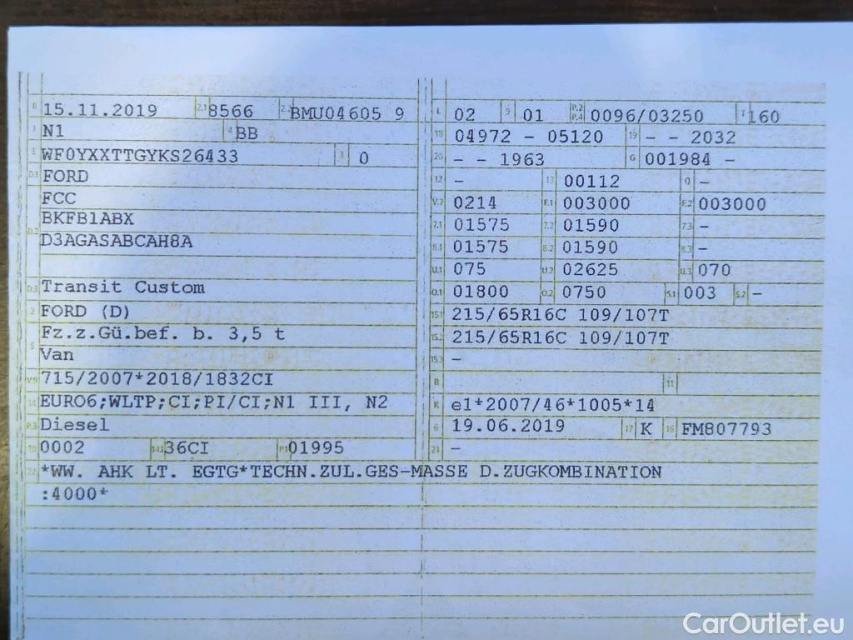 15.11.2019 2.1 8566 BMU04605 9
N1 BB
WF0YXXTTGYKS26433 0
FORD
FCC
BKFB1ABX
D3AGASABCAH8A
Transit Custom
FORD (D)
Fz.z.Gü.bef. b. 3,5 t
Van
715/2007*2018/1832CI
EURO6;WLTP;CI;PI/CI;N1 III, N2
Diesel
0002 36CI 01995
02 01 0096/03250 160
04972 - 05120 - - 2032
- - 1963 001984 -
- 00112 -
0214 003000 003000
01575 01590 -
01575 01590 -
075 02625 070
01800 0750 003 -
215/65R16C 109/107T
215/65R16C 109/107T
-
e1*2007/46*1005*14
19.06.2019 K FM807793
-
*WW. AHK LT. EGTG*TECHN.ZUL.GES-MASSE D.ZUGKOMBINATION
:4000*
CarOutlet.eu